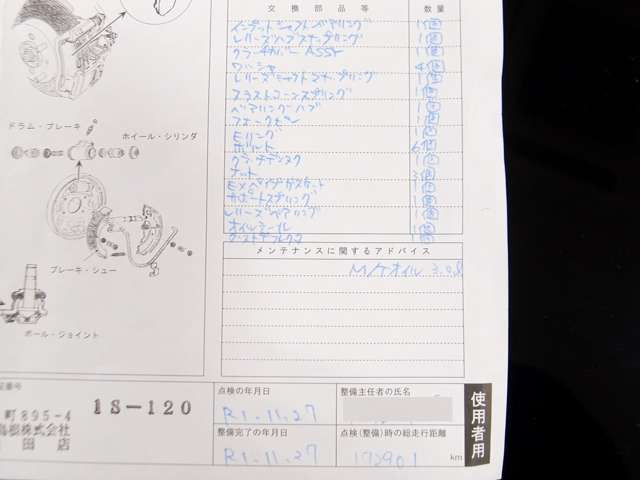 交換部品等 数量
インプットシャフトベアリング 1個
レリーズハブスナップリング 1個
クラッチカバーASSY 1個
ワッシャ 4個
1個
スラストコーンスプリング 1個
ベアリングハブ 1個
フォークピン 1個
Eリング 1個
ボルト 6個
クラッチディスク 1個
ナット 3個
EXパイプガスケット 1個
サポートスプリング 1個
レリーズベアリング 1個
オイルシール 1個
ダストデフレクタ
ドラム・ブレーキ
ホイール・シリンダ
ブレーキ・シュー
ボール・ジョイント
メンテナンスに関するアドバイス
M/Tオイル 3.4ℓ
証番号
1S-120
町895-4
島根株式会社
田店
点検の年月日
R1.11.27
整備主任者の氏名
整備完了の年月日
R1.11.27
点検(整備)時の総走行距離
172901 km
使用者用